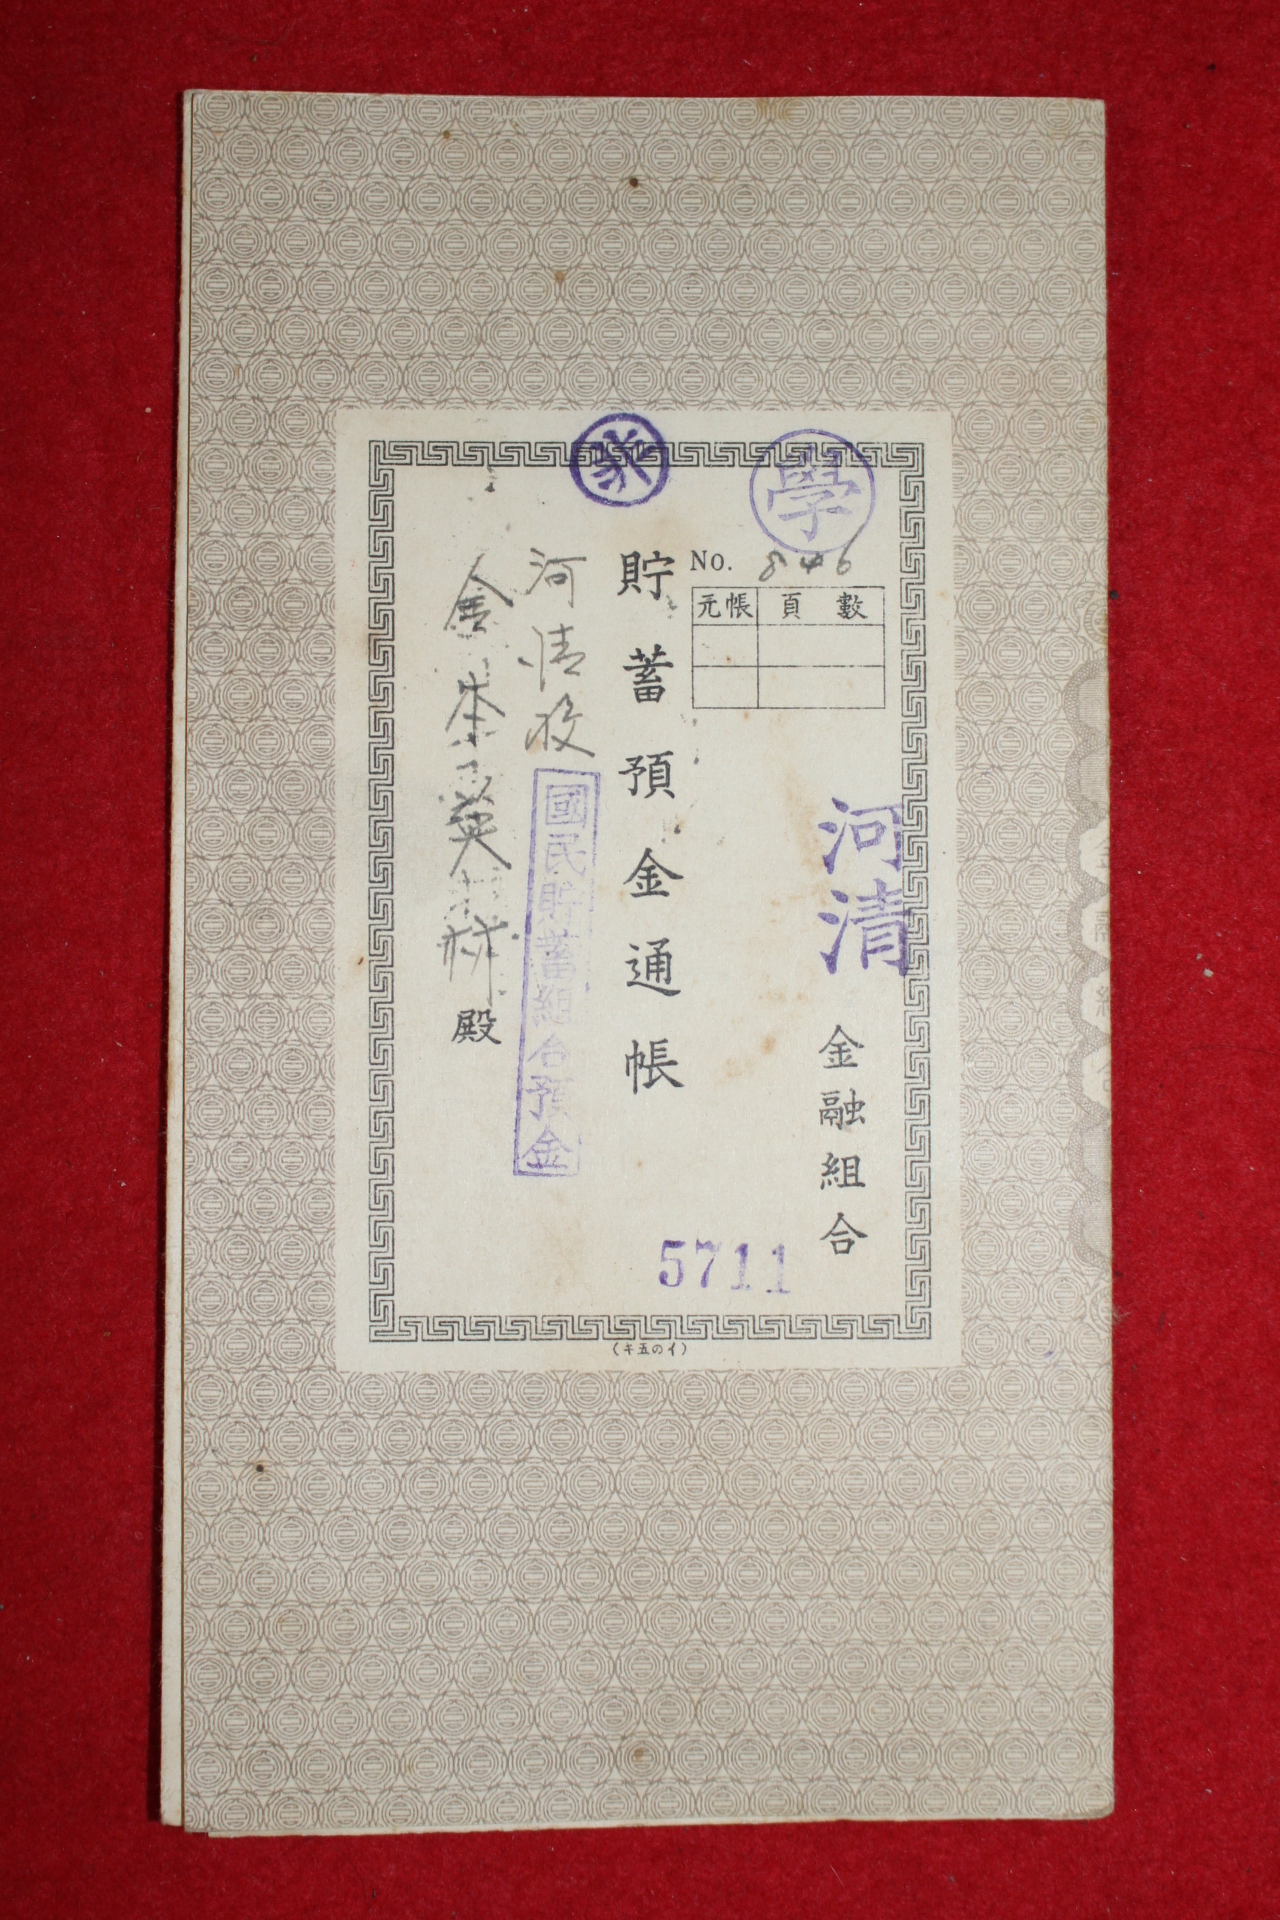 學
No. 846
元帳 頁數
河清 金融組合
5711
貯蓄預金通帳
河清收
國民貯蓄組合預金
金本英 殿
(イの五キ)